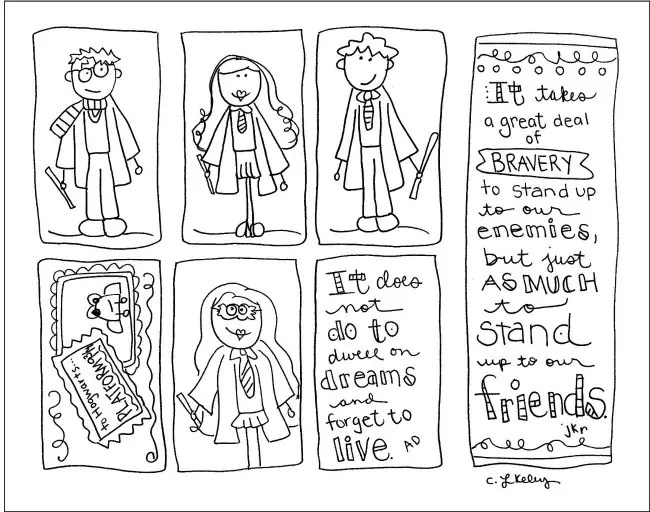 to Hogwarts...
PLATFORM 9¾
It does
not
do to
dwell on
dreams
and
forget to
live. AD
It takes
a great deal
of
BRAVERY
to stand up
to our
enemies,
but just
AS MUCH
to
stand
up to our
friends.
jkr